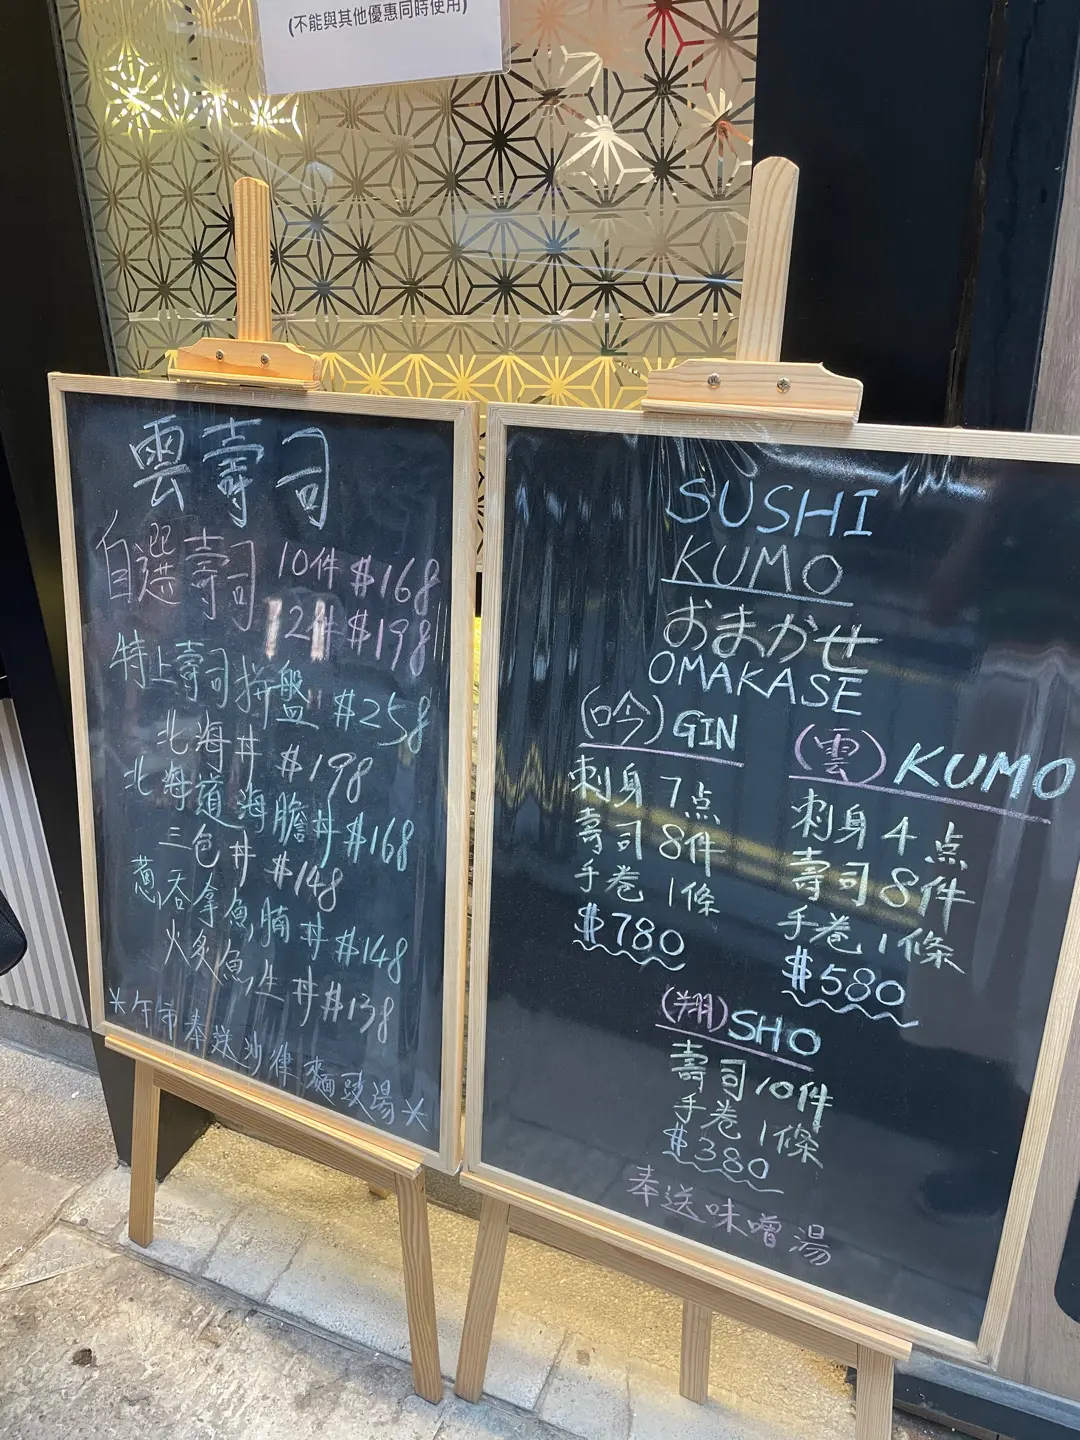 (不能與其他優惠同時使用)
雲壽司
自選壽司 10件 $168
12件 $198
特上壽司拼盤 $258
北海丼 $198
北海道海膽丼 $168
三色丼 $148
蔥吞拿魚腩丼 $148
火炙魚生丼 $138
*午市奉送沙律麵豉湯*
SUSHI
KUMO
おまかせ
OMAKASE
(吟) GIN
刺身 7点
壽司 8件
手卷 1條
$780
(雲) KUMO
刺身 4点
壽司 8件
手卷 1條
$580
(翔) SHO
壽司 10件
手卷 1條
$380
奉送味噌湯